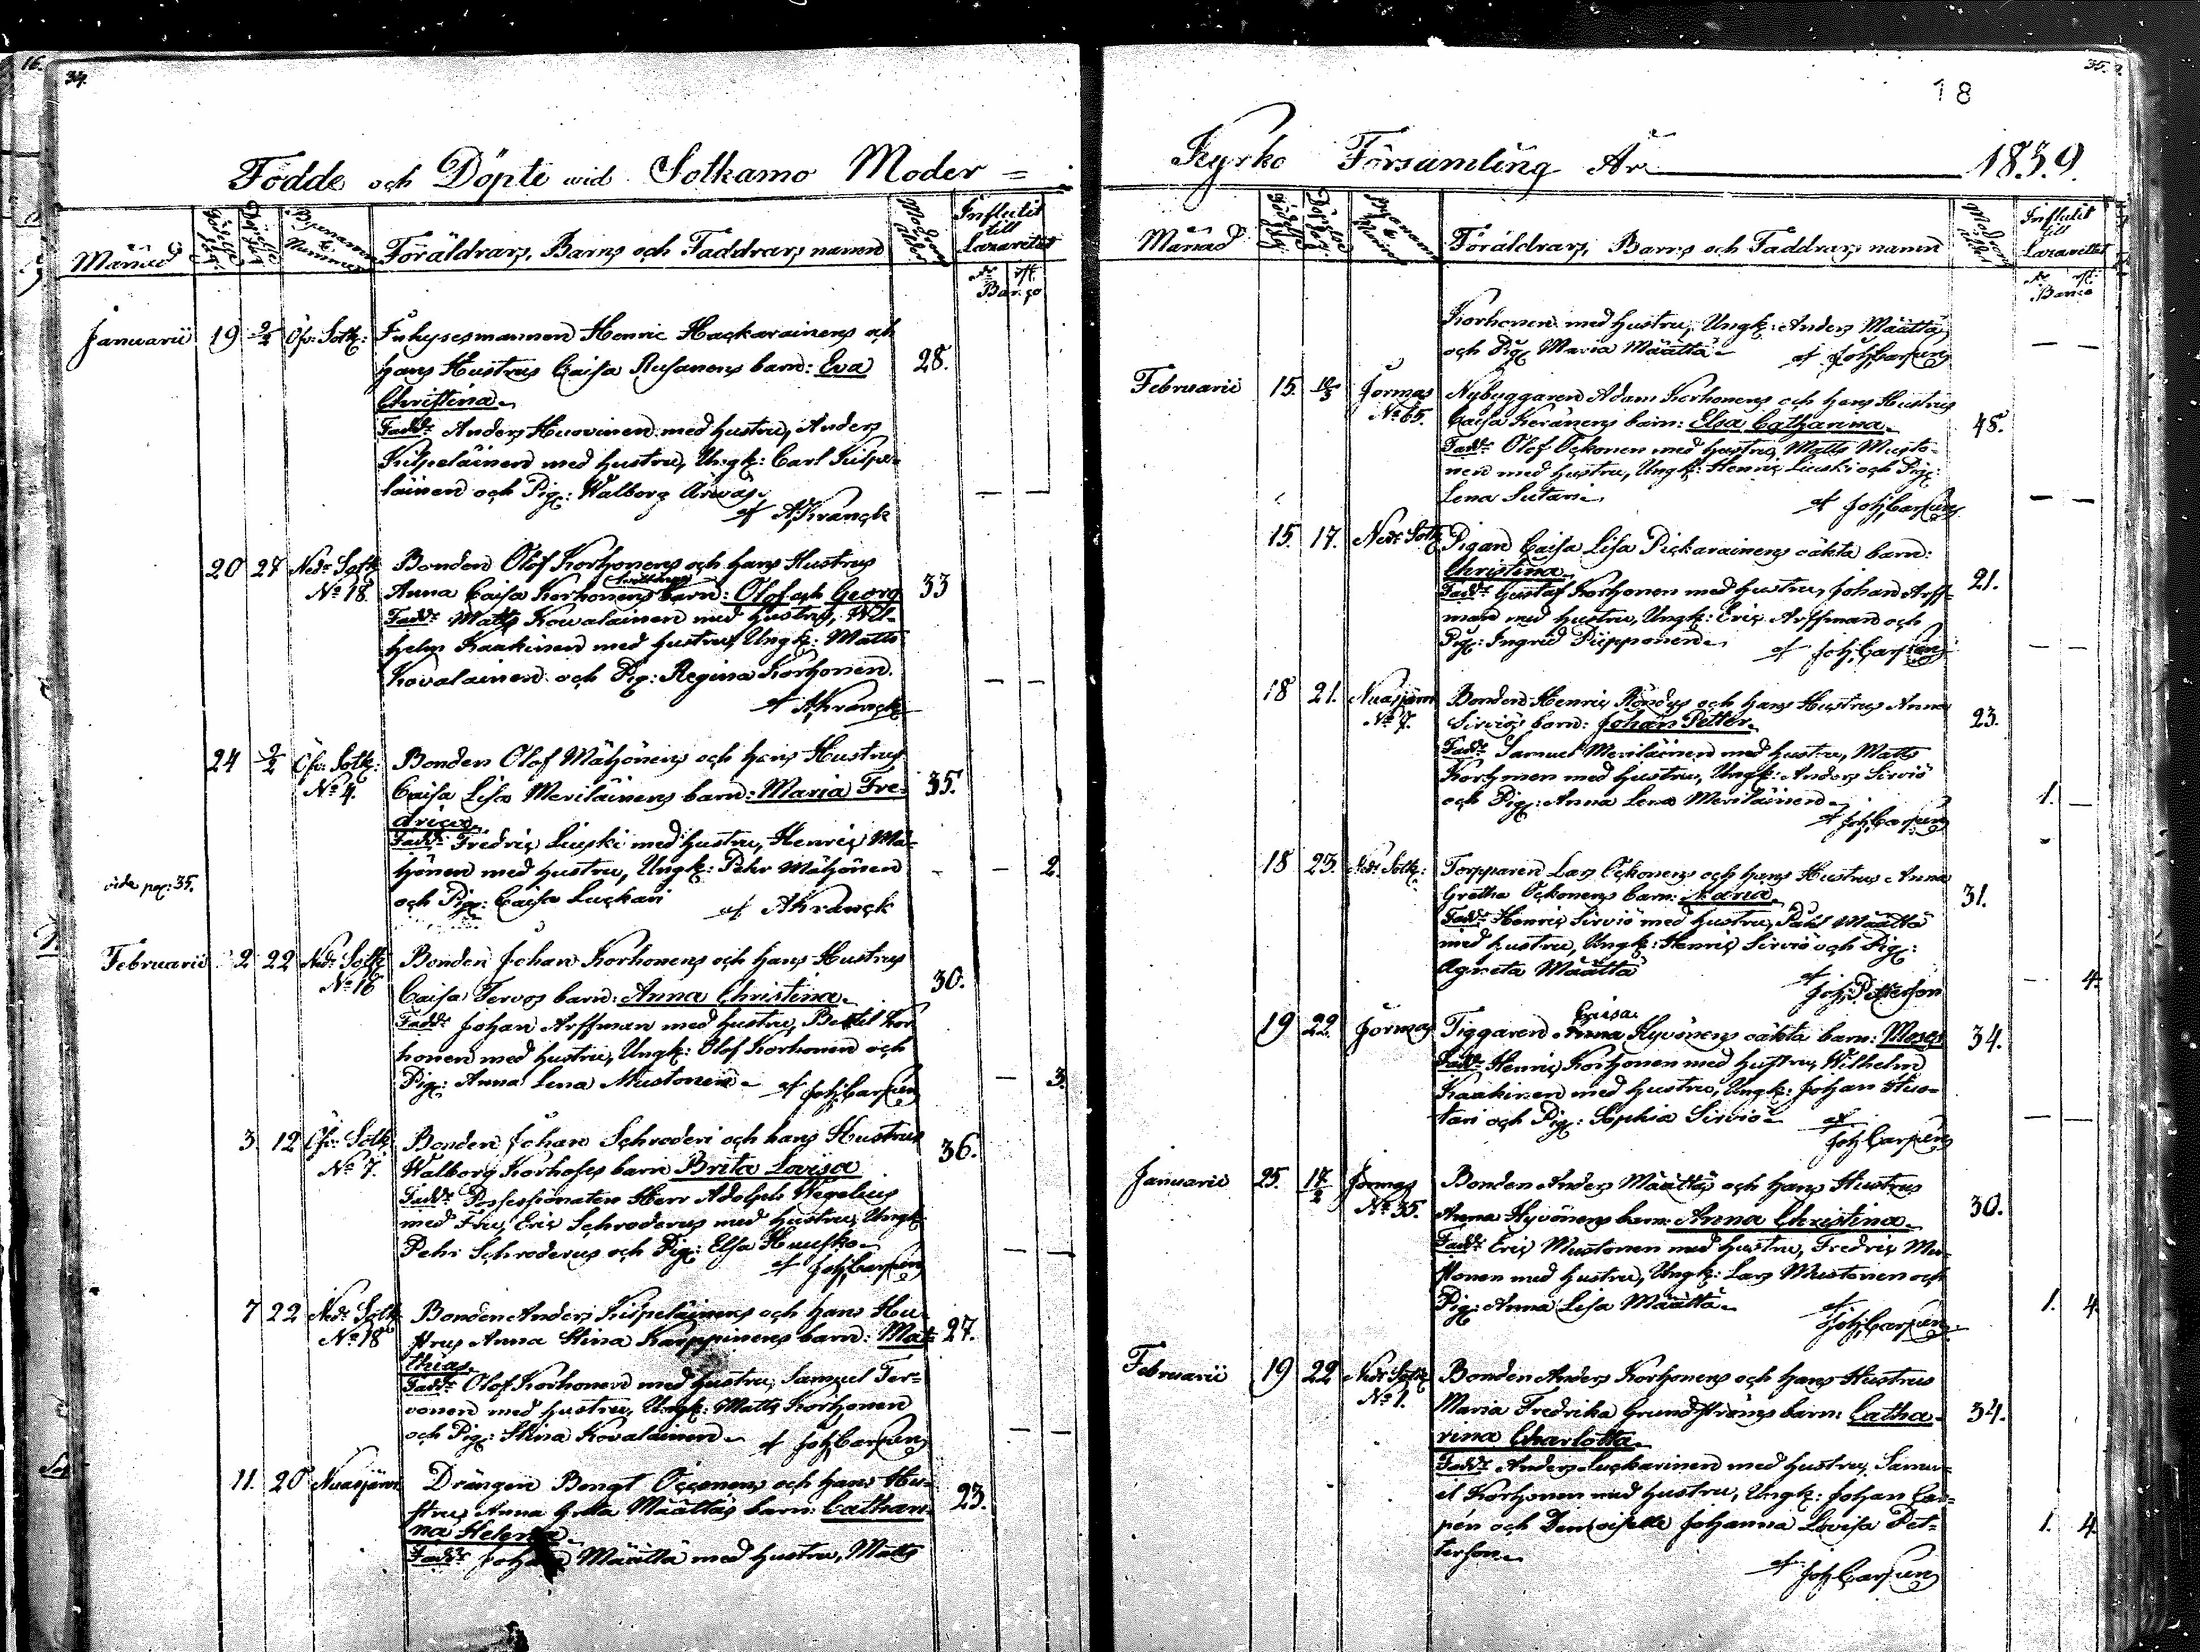 16.
34.
Födde och Döpte wid Sotkamo Moder =
Månad
Bynamn & Nummer
Föräldrars, Barns och Faddrars namn
Modrens ålder
Influtit till Lazarettet
Januarii 19 2/2 Öfv: Sotk: Inhysesmannen Henric Hackarainens och
hans Hustrus Caisa Rusanens barn: Eva 28.
Christina.
Fadd: Anders Huovinen med hustru, Anders
Kilpeläinen med hustru, Ungk: Carl Kilpe-
läinen och Pig: Walborg
af A: Kranck
20 27 Nedr Sotk Bonden Olof Korhonens och hans Hustrus
No 18. Anna Caisa Korhonens tvillings barn: Olof och Georg 33
Fadd: Matts Kowalainen med hustru, Wil-
helm Kaakinen med hustru, Ungk: Matts
Kovalainen och Pig: Regina Korhonen.
af A: Kranck
24 2/2 Öfv: Sotk: Bonden Olof Mähönens och hans Hustrus
No 4. Caisa Lisa Meriläinens barn: Maria Fre- 35.
drica.
Fadd: Fredric Liuski med hustru, Henric Mä-
hönen med hustru, Ungk: Pehr Mähönen - - 2.
vide pag: 35.
och Pig: Caisa Luckari af A Kranck
Februarii 2 22 Nedr Sotk Bonden Johan Korhonens och hans Hustrus
No 16 Caisa Tervos barn: Anna Christina. 30.
Fadd: Johan Arffman med hustru, Bertil Kor
honen med hustru, Ungk: Olof Korhonen och
Pig: Anna Lena Mustonen af Joh: Carpén - 3.
3. 12 Öfv: Sotk. Bonden Johan Schroderi och hans Hustrus
No 7. Walborg Korhoses barn Brita Lovisa 36.
Fadd: Possessionaten Herr Adolph Wegelius
med Fru, Eric Schroderus med hustru, Ungk:
Pehr Schroderus och Pig: Elsa Huusko
af Joh: Carpén
7 22 Nedr Sotk Bonden Anders Kilpeläinens och hans Hu-
No 18 strus Anna Stina Karppinens barn: Mat- 27.
thias
Fadd: Olof Korhonen med hustru, Samuel Ter-
vonen med hustru, Ungk: Matts Korhonen
och Pig: Stina Kovalainen af Joh: Carpén
11. 20 Nuasjärvi Drängen Bengt Öccenens och hans Hu-
strus Anna Greta Määttäs barn: Cathari- 23.
na Helena
Fadd: Johan Määttä med hustru, Matts
35.
18
Kyrko Församling År 1839.
Månad
Bynamn & Numer
Föräldrars, Barns och Faddrars namn
Modrens ålder
Influtit till Lazarettet
Korhonen med hustru, Ungk: Anders Määttä
och Pig: Maria Määttä af Joh: Carpén
Februarii 15. 10/3 Jormas Nybyggaren Adam Korhonens och hans Hustrus
No 65. Caisa Keränens barn: Elsa Catharina 45.
Fadd: Olof Ockonen med hustru, Matts Musto-
nen med hustru, Ungk: Henric Liuski och Pig:
Lena Sutari
af Joh: Carpén
15. 17. Nedr Sotk Pigan Caisa Lisa Pickarainens oäkta barn:
Christina 21.
Fadd: Gustaf Korhonen med hustru, Johan Arff-
man med hustru, Ungk: Eric Arffman och
Pig: Ingrid Piipponen
af Joh: Carpén
18 21. Nuasjärvi Bonden Henric Röndys och hans Hustrus Anna
No 7. Sirviös barn: Johan Petter 23.
Fadd: Samuel Meriläinen med hustru, Matts
Korhonen med hustru, Ungk: Anders Sirviö
och Pig: Anna Lena Meriläinen 1.
af Joh: Carpén
18 23. Nedr Sotk: Torpparen Lars Ockonens och hans Hustrus Anna
Gretha Ockonens barn: Maria 31.
Fadd: Henric Sirviö med hustru, Påhl Määttä
med hustru, Ungk: Henric Sirviö och Pig:
Agneta Määttä - 4.
af Joh: Petterson
19 22 Jormas Tiggaren Caisa Hyvönens oäkta barn: Moses 34.
Fadd: Henric Korhonen med hustru, Wilhelm
Kaakinen med hustru, Ungk: Johan Huo-
tari och Pig: Sophia Sirviö
af
Joh: Carpén
Januarii 25. 17/2 Jormas Bonden Anders Määttäs och hans Hustrus
No 35. Anna Hyvönens barn: Anna Christina 30.
Fadd: Eric Mustonen med hustru, Fredric Mu-
stonen med hustru, Ungk: Lars Mustonen och
Pig: Anna Lisa Määttä 1. 4
af
Joh: Carpén
Februarii 19 22 Nedr Sotk Bonden Anders Korhonens och hans Hustrus
No 1. Maria Fredrika Grundströms barn: Catha- 34.
rina Charlotta
Fadd: Anders Luckarinen med hustru, Samu-
el Korhonen med hustru, Ungk: Johan Car-
pén och Demoiselle Johanna Lovisa Pet- 1. 4
terson
af Joh: Carpén